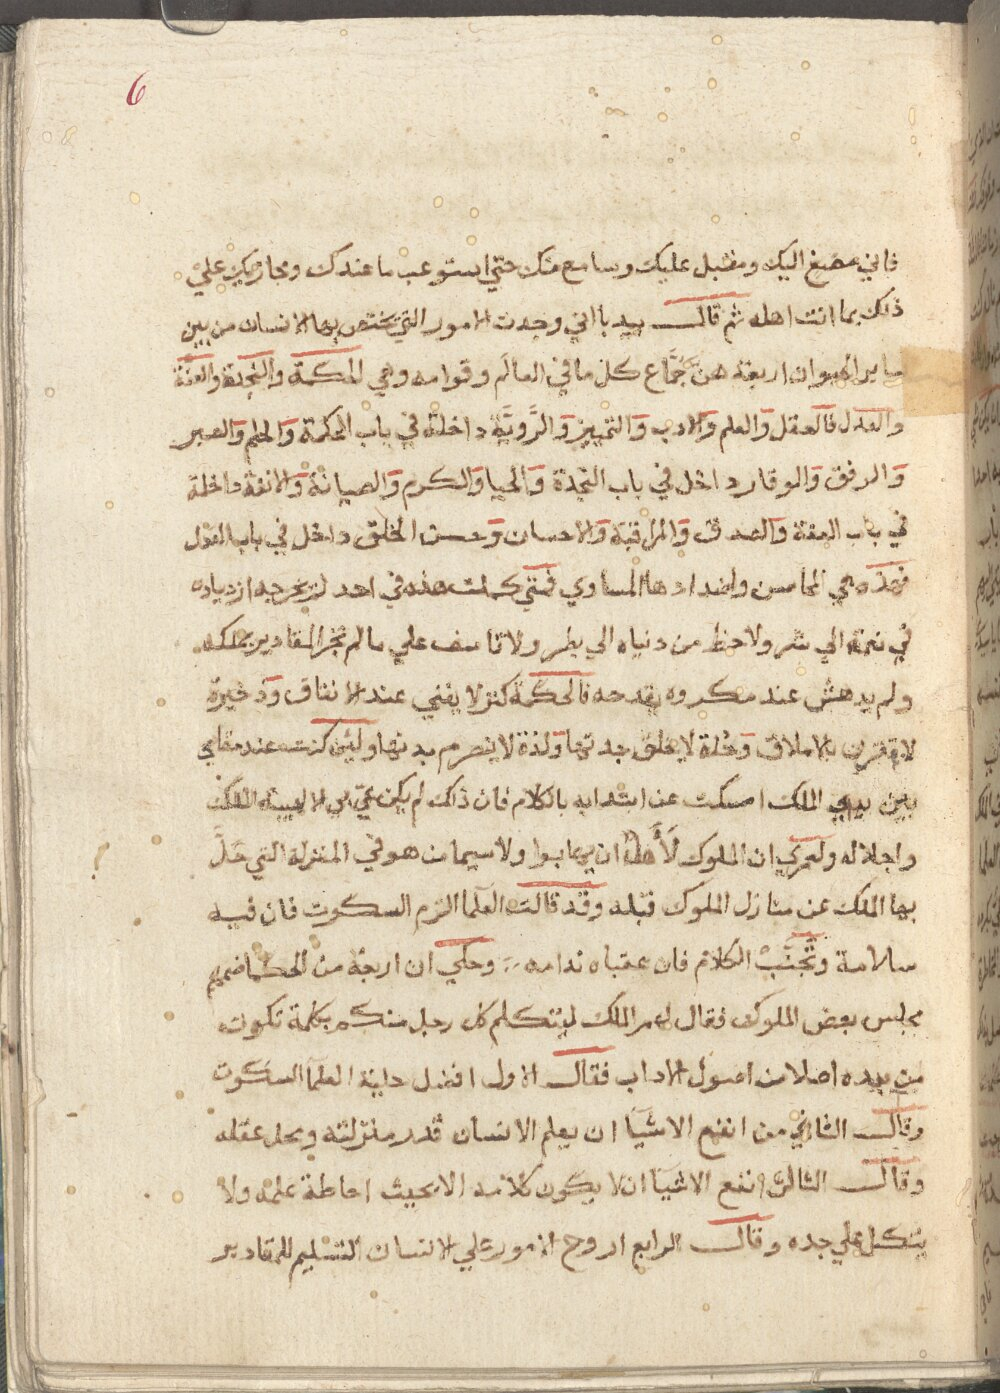 6
فاني مصغ اليك ومقبل عليك وسامع منك حتي استوعب ما عندك ومجازيك علي
ذلك بما انت اهله ثم قال بيدبا اني وجدت الامور التي يختص بها الانسان من بين
ساير الحيوان اربعة هن جُمَّاع كل ما في العالم وقوامه وهي الحكمة والنجدة والعفة
والعدل فالعقل والعلم والادب والتمييز والرَّويَّة داخلة في باب الحكمة والحلم والصبر
والرفق والوقار داخل في باب النجدة والحيا والكرم والصيانة والانفة داخلة
في باب العفة والصدق والمراقبة والاحسان وحسن الخلق داخل في باب العدل
فهذه هي المحاسن واضدادها المساوي فمتي كملت هذه في احد لم يخرجه ازدياده
في نعمة الي شر ولا حظ من دنياه الي بطر ولا تاسف علي ما لم تجر المقادير بملكه
ولم يدهش عند مكروه يقدحه فالحكمة كنز لا يفني عند الانفاق وذخيرة
لا تفترن بالاملاق وخلة لا يخلق جدتها ولذة لا ينصرم بدنها ولئن كنت عند مقامي
بين يدي الملك امسكت عن ابتدايه بالكلام فان ذلك لم يكن عيّ بي الا لهيبة الملك
واجلاله ولعمري ان الملوك لَأَهلٌ ان يهابوا ولا سيما من هو في المنزلة التي حَلَّ
بها الملك عن منازل الملوك قبله وقد قالت العلما الزم السكوت فان فيه
سلامة وتَجَنَّبْ الكلام فان عقباه ندامه وحكي ان اربعة من الحكما ضمهم
مجلس بعض الملوك فقال لهم الملك ليتكلم كل رجل منكم بكلمة تكون
من بيده اصلا من اصول الاداب فقال الاول افضل حلية العلما السكوت
وقال الثاني من انفع الاشيا ان يعلم الانسان قدر منزلته ومحل عقله
وقال الثالث انفع الاشيا ان لا يكون كلامه الا بحيث احاطة علمه ولا
يتكل علي جده وقال الرابع اروح الامور علي الانسان التسليم للمقادير
?